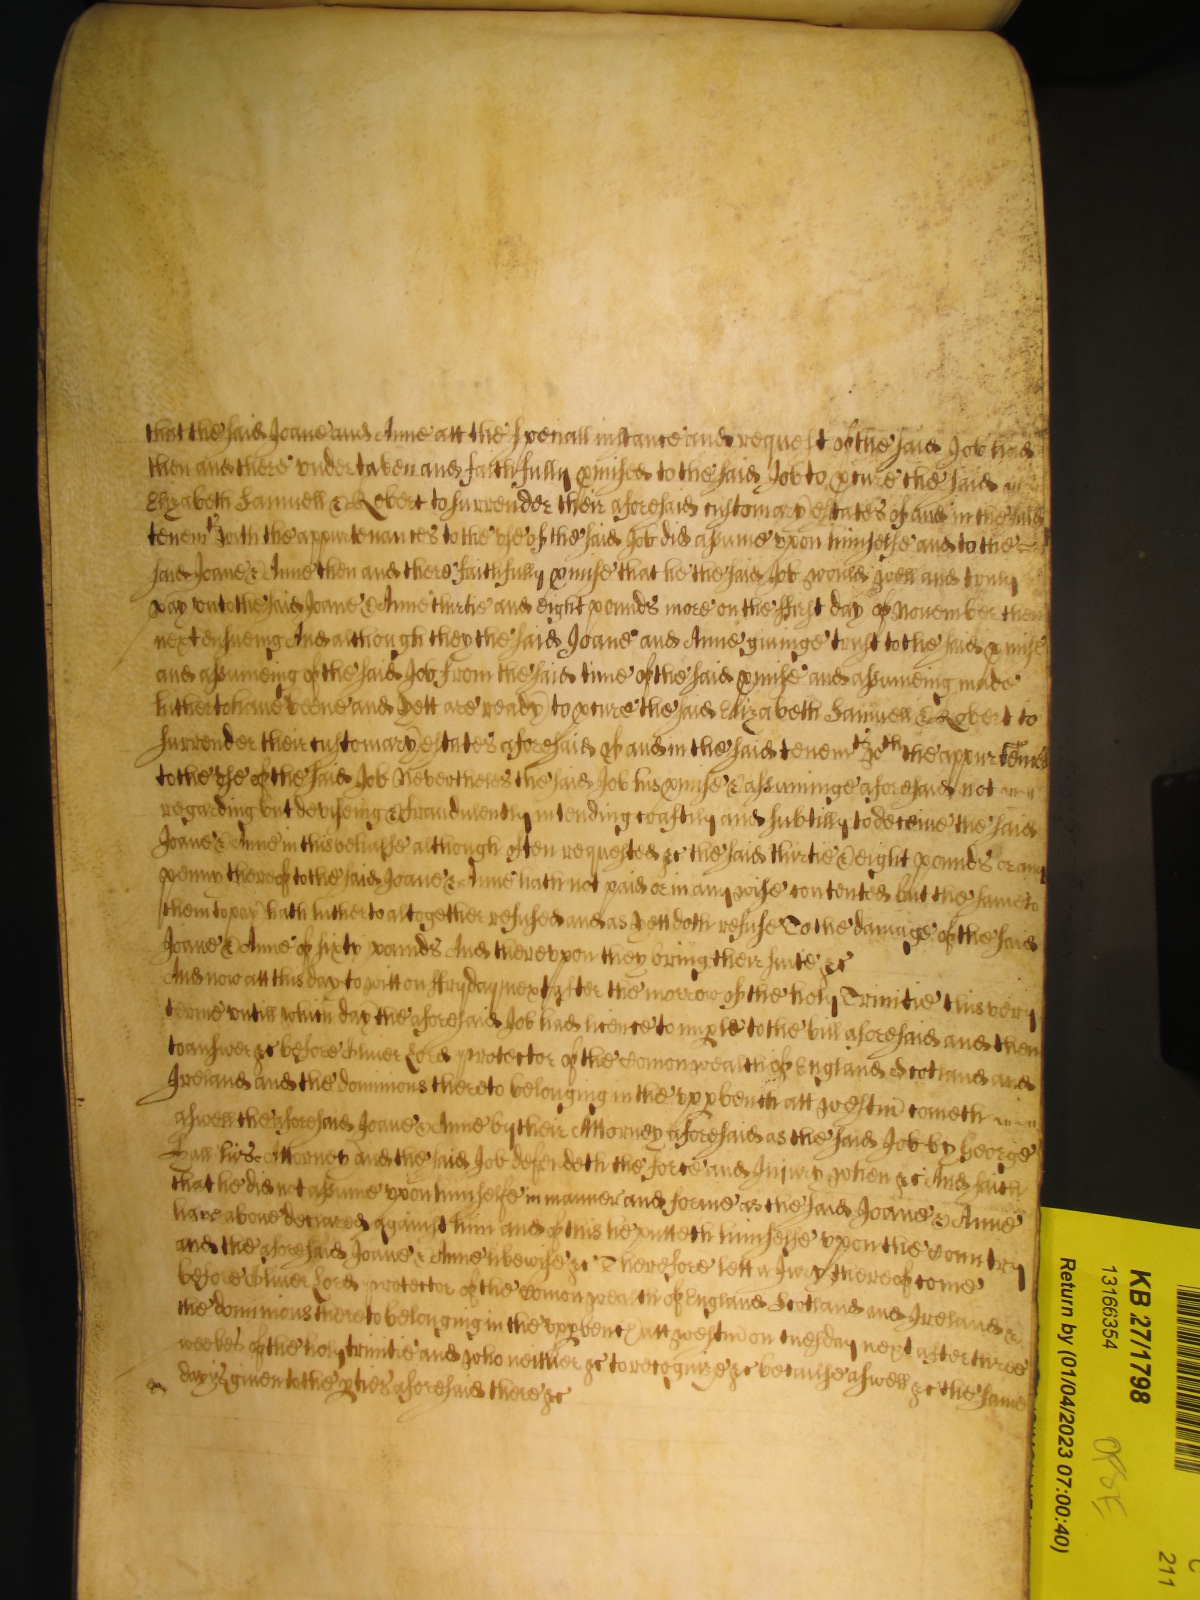 that the said Joane and Anne att the speciall instance and request of the said Job had
then and there undertaken and faithfully pmised to the said Job to pcure the said
Elizabeth Samuell & Robert to surrender their aforesaid customary estates of and in the said
tenemts with the appurtenances to the use of the said Job did assume upon himselfe and to the
said Joane & Anne then and there faithfully pmise that he the said Job would well and truly
pay unto the said Joane & Anne thirtie and eight pounds more on the first day of November then
next ensueing And although they the said Joane and Anne giuinge trust to the said pmise
and assumeing of the said Job from the said time of the said pmise and assumeing made
hitherto haue beene and yett are ready to pcure the said Elizabeth Samuell & Robert to
surrender their customary estates aforesaid of and in the said tenemts wth the appurtenncs
to the use of the said Job Nevertheles the said Job his pmise & assuminge aforesaid not
regarding but deviseing & fraudulently intending craftily and subtilly to deceiue the said
Joane & Anne in this behalfe although often requested &c the said thirtie & eight pounds or any
penny thereof to the said Joane & Anne hath not paid or in any wise contented but the same to
them to pay hath hitherto altogether refused and as yett doth refuse To the damage of the said
Joane & Anne of sixty pounds And thereupon they bring their suite &c
And now att this day to witt on ffryday next after the morrow of the holy Trinitie this very
terme untill which day the aforesaid Job had licence to imple to the bill aforesaid and then
to answer &c before Oliver Lord Protector of the Comonwealth of England Scotland and
Ireland and the dominions thereto belonging in the upp bench att Westm cometh
aswell the aforesaid Joane & Anne by their Attorney aforesaid as the said Job by George
his Attorney and the said Job defendeth the force and Injury when &c And saith
that he did not assume upon himselfe in manner and forme as the said Joane & Anne
haue aboue declared against him and of this he putteth himselfe upon the Country
and the aforesaid Joane & Anne likewise &c Therefore lett a Jury thereof come
before Oliver Lord Protector of the Comonwealth of England Scotland and Ireland &
the dominions thereto belonging in the upp bench att Westm on tuesday next after three
weekes of the holy trinitie and who neither &c to recognize &c because aswell &c the same
day is giuen to the pties aforesaid there &c
KB 27/1798
13166354
Return by (01/04/2023 07:00:40)
211